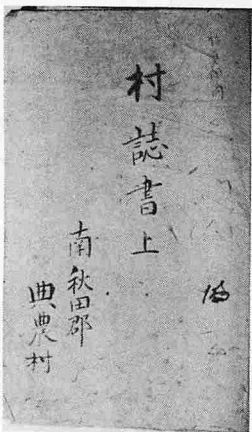 村誌書上
南秋田郡
典農村